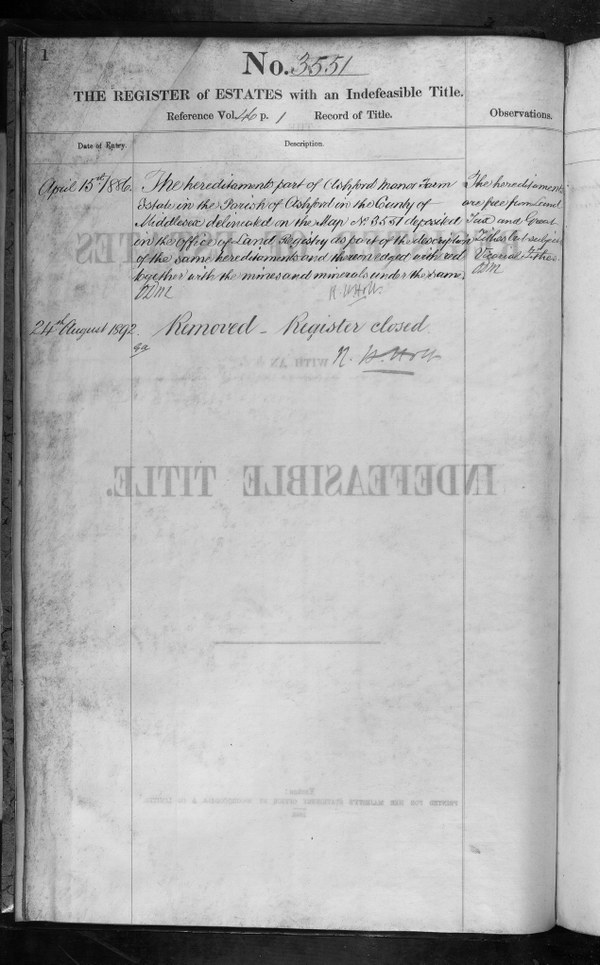 1
No. 3551
THE REGISTER of ESTATES with an Indefeasible Title.
Reference Vol. 46 p. 1 Record of Title.
Observations.
Date of Entry.
Description.
April 15th 1886.
The hereditaments part of Ashford Manor Farm
Estate in the Parish of Ashford in the County of
Middlesex delineated on the Map No 3551 deposited
in the Office of Land Registry as part of the description
of the same hereditaments and thereon edged with red
together with the mines and minerals under the same
The hereditaments
are free from Land
Tax and Great
Tithes but subject
Vicarial Tithes
24th August 1892.
Removed - Register closed.
R. W. Holt
WITH AN
INDEFEASIBLE TITLE.